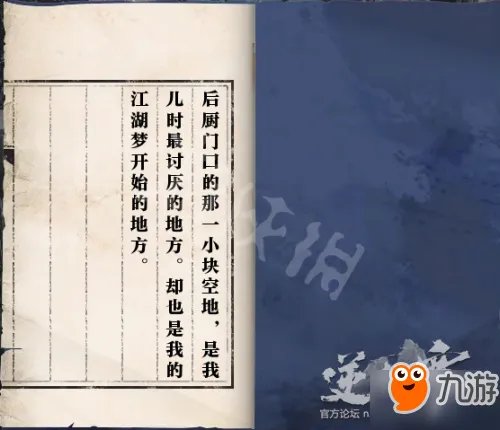 后厨门口的那一小块空地，是我
儿时最讨厌的地方。却也是我的
江湖梦开始的地方。
官方论坛
九游